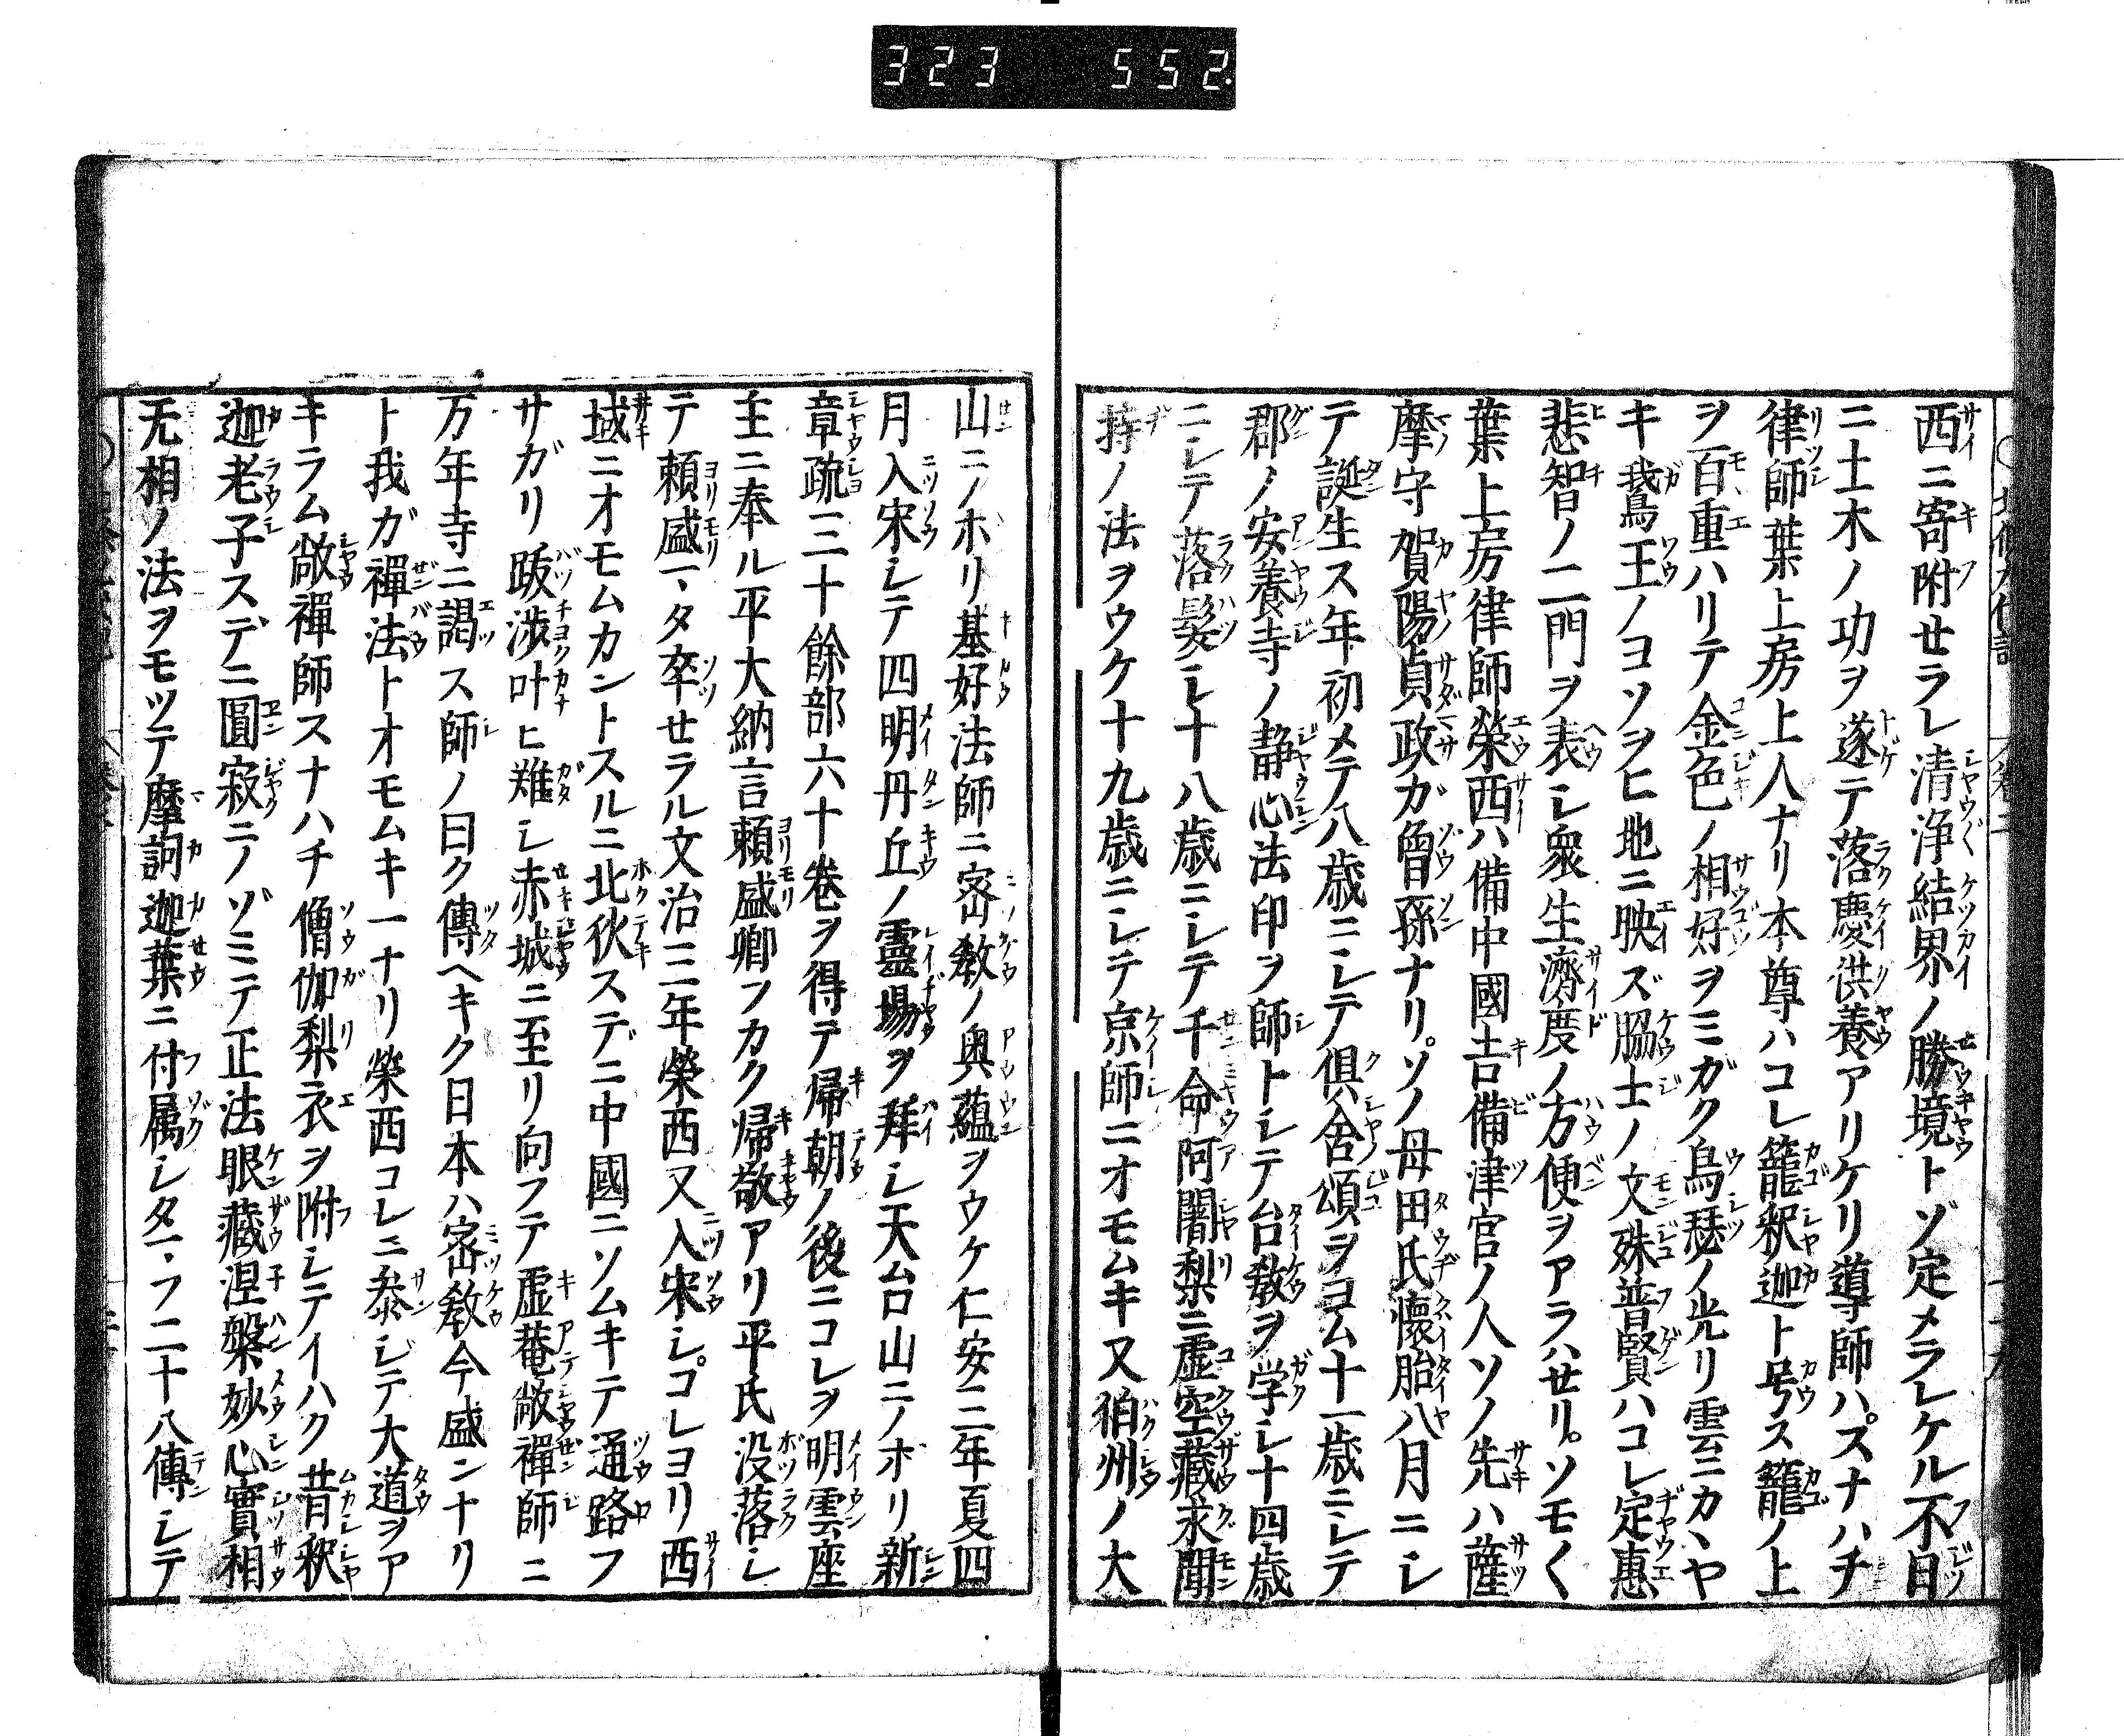 323 552
西ニ寄附セラレ清浄結界ノ勝境トゾ定メラレケル不日
ニ土木ノ功ヲ遂テ落慶供養アリケリ導師ハスナハチ
律師葉上房上人ナリ本尊ハコレ籠釈迦ト号ス籠ノ上
ヲ百重ハリテ金色ノ相好ヲミガク烏瑟ノ光リ雲ニカヽヤ
キ鵞王ノヨソヲヒ地ニ映ズ脇士ノ文殊普賢ハコレ定惠
悲智ノ二門ヲ表シ衆生濟度ノ方便ヲアラハセリ。ソモ〱
葉上房律師榮西ハ備中國吉備津宮ノ人ソノ先ハ薩
摩守賀陽貞政ガ曽孫ナリ。ソノ母田氏懐胎八月ニシ
テ誕生ス年初メテ八歳ニシテ倶舎頌ヲヨム十一歳ニシテ
郡ノ安養寺ノ静心法印ヲ師トシテ台教ヲ学シ十四歳
ニシテ落髪シ十八歳ニシテ千命阿闍梨ニ虚空藏求聞
持ノ法ヲウケ十九歳ニシテ京師ニオモムキ又伯州ノ大
山ニノホリ基好法師ニ密教ノ奥蘊ヲウケ仁安三年夏四
月入宋シテ四明丹丘ノ靈場ヲ拜シ天台山ニノホリ新
章疏三十餘部六十巻ヲ得テ帰朝ノ後ニコレヲ明雲座
主ニ奉ル平大納言頼盛卿フカク帰敬アリ平氏没落シ
テ頼盛一タ卒セラル文治三年榮西又入宋シ。コレヨリ西
域ニオモムカントスルニ北狄スデニ中國ニソムキテ通路フ
サガリ跋渉叶ヒ難シ赤城ニ至リ向フテ虚菴敞禪師ニ
万年寺ニ謁ス師ノ曰ク傳ヘキク日本ハ密教今盛ンナリ
ト我ガ禪法トオモムキ一ナリ榮西コレニ参シテ大道ヲア
キラム敞禪師スナハチ僧伽梨衣ヲ附シテイハク昔釈
迦老子スデニ圓寂ニノゾミテ正法眼藏涅槃妙心實相
无相ノ法ヲモツテ摩訶迦葉ニ付属シタマフ二十八傳シテ